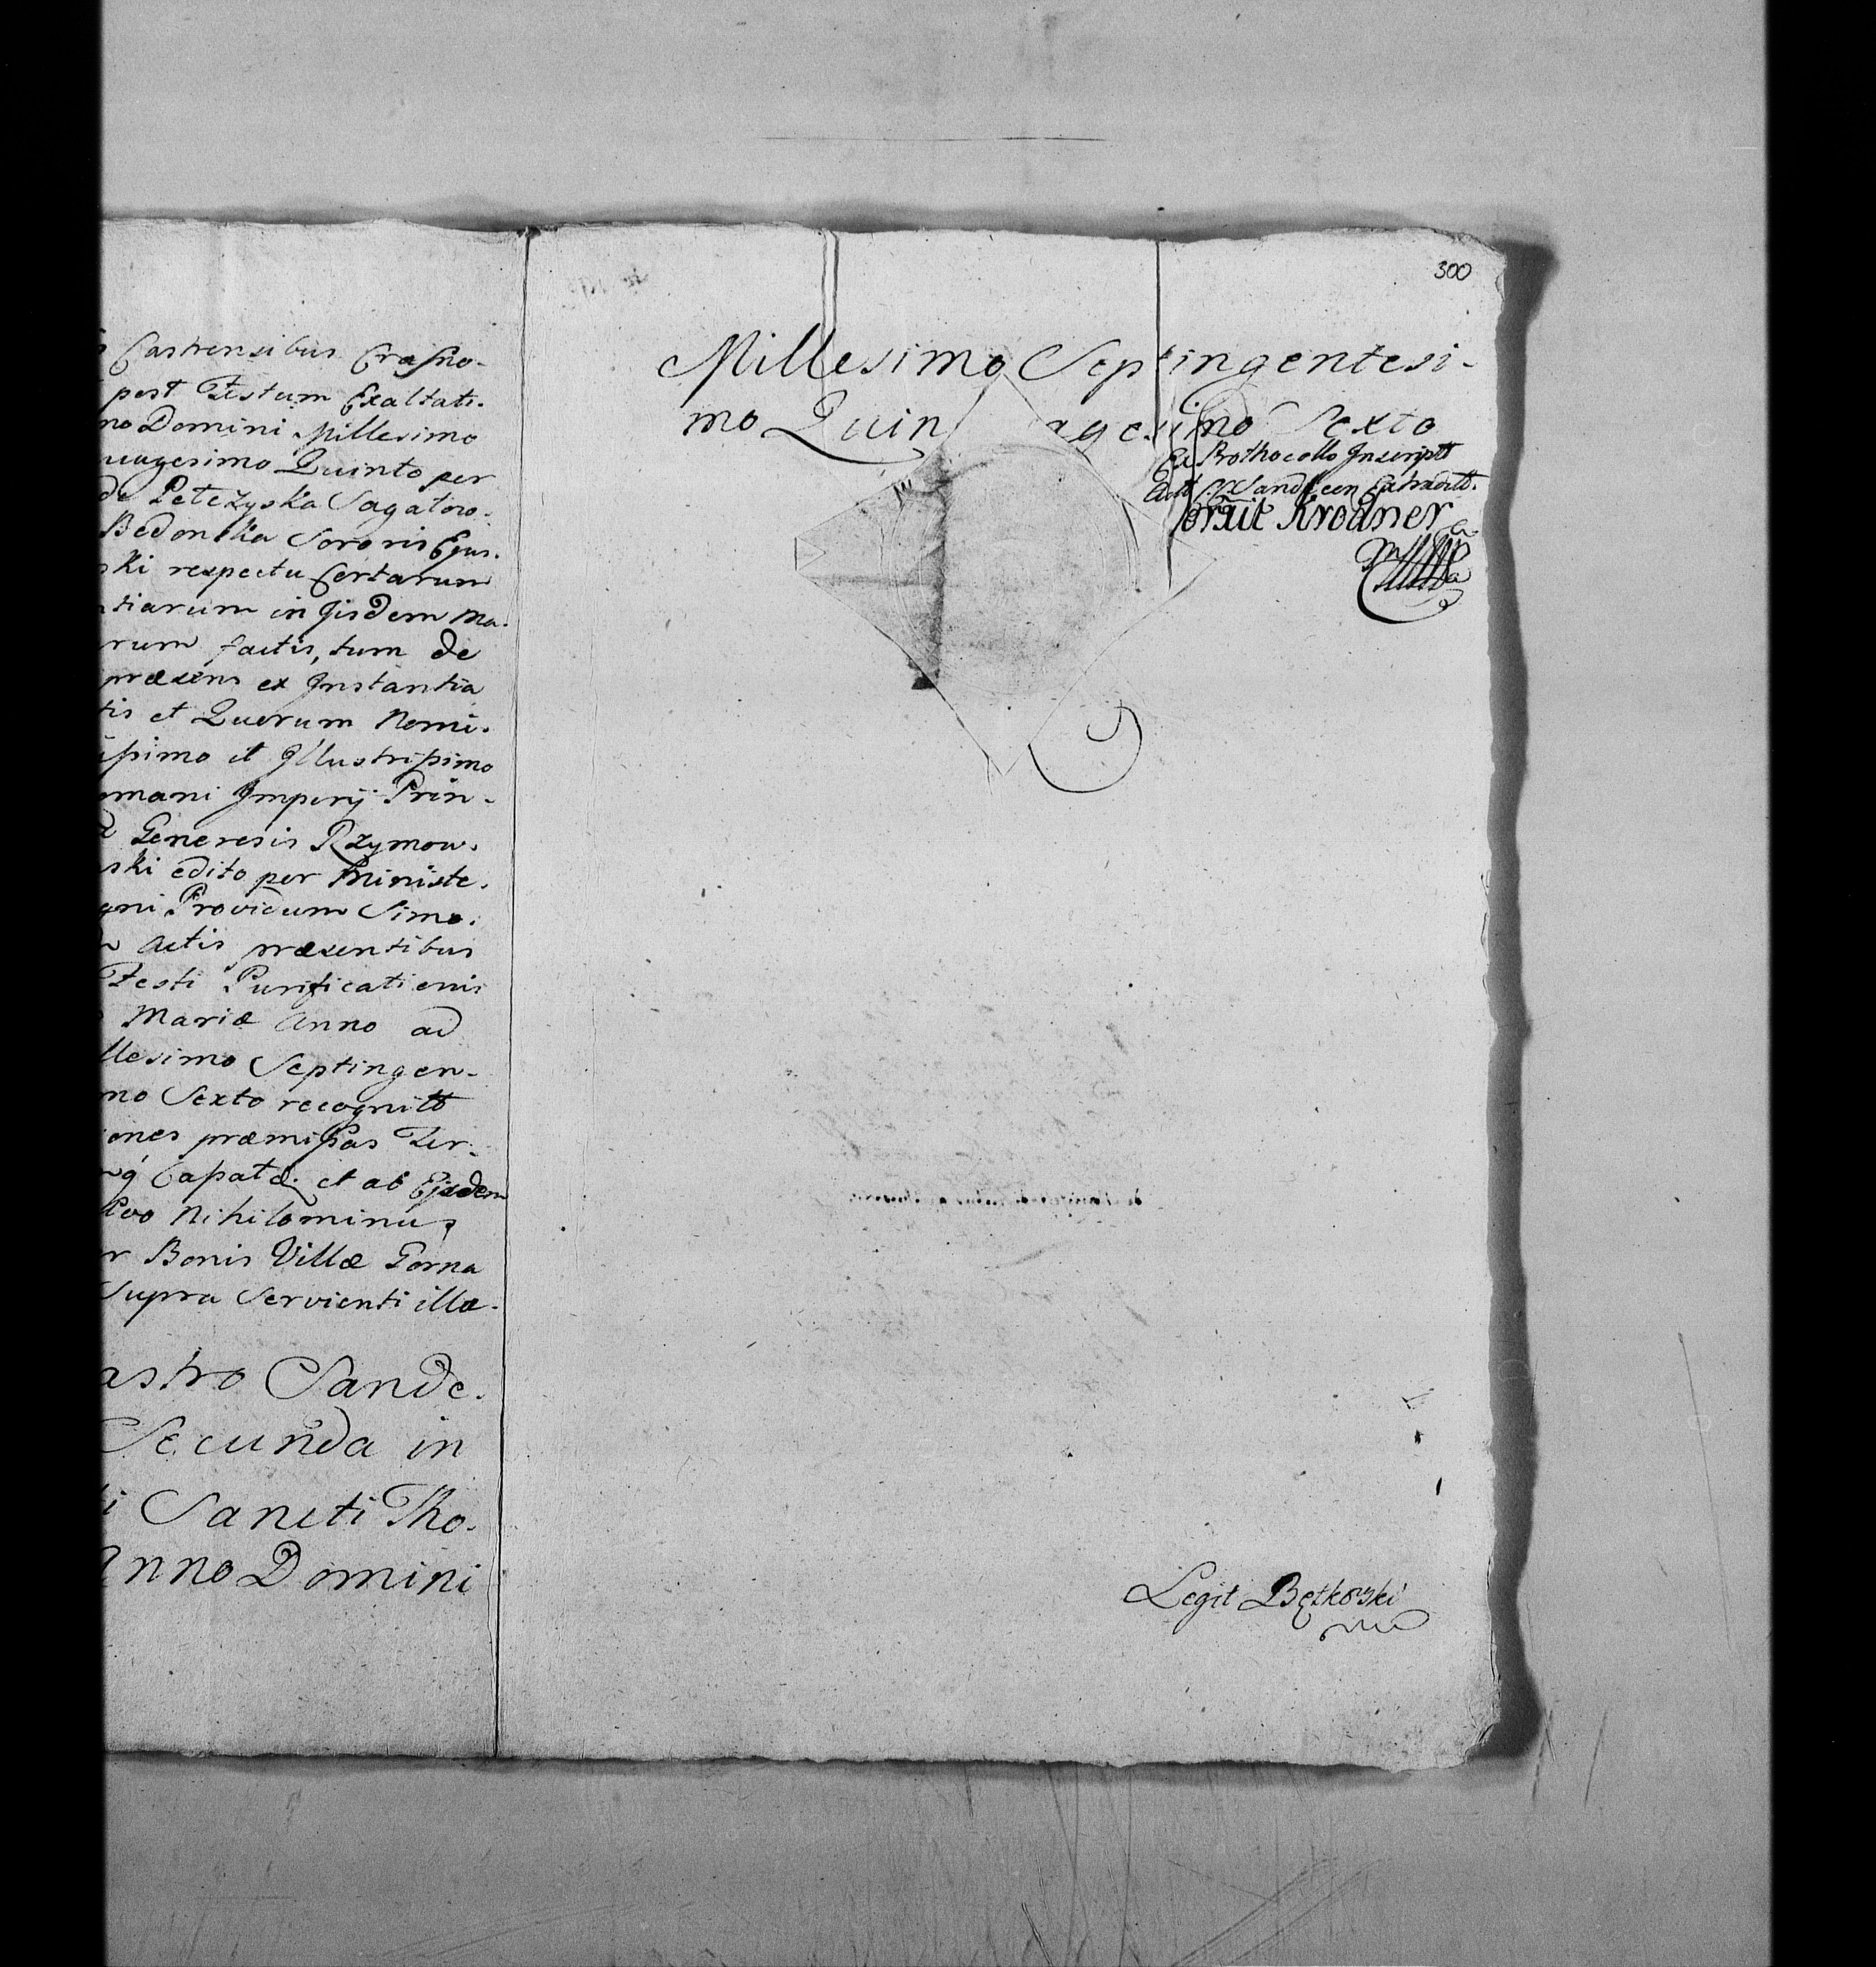 Castrensibus Crasno-
post Festum Exaltati-
no Domini Millesimo
uagesimo Quinto per
de Petczyska Sagatow-
Bedonska Sororis Ejus-
ski respectu Certarum
ntiarum in Jisdem Ma-
rum factis, tum de
præsens ex Instantia
tis et Quorum Nomi-
ißimo et Illustrißimo
omani Imperij Prin-
Generosis Rzymow-
ski edito per Ministe-
gni Providum Simo-
Actis præsentibus
Festi Purificationis
Mariæ Anno ad
llesimo Septingen-
mo Sexto recognitt
iones præmißas Ter-
et ab Ejsdem
lvo Nihilominus
r Bonis Villæ Gorna
Supra Servienti illæ-
astro Sande-
Secunda in
ti Sancti Tho-
Anno Domini
300
Millesimo Septingentesi-
mo Quin agesimo Sexto
Ex Prothocollo Inscriptt
Extraditt.
Krodner
Legit Bętkowski